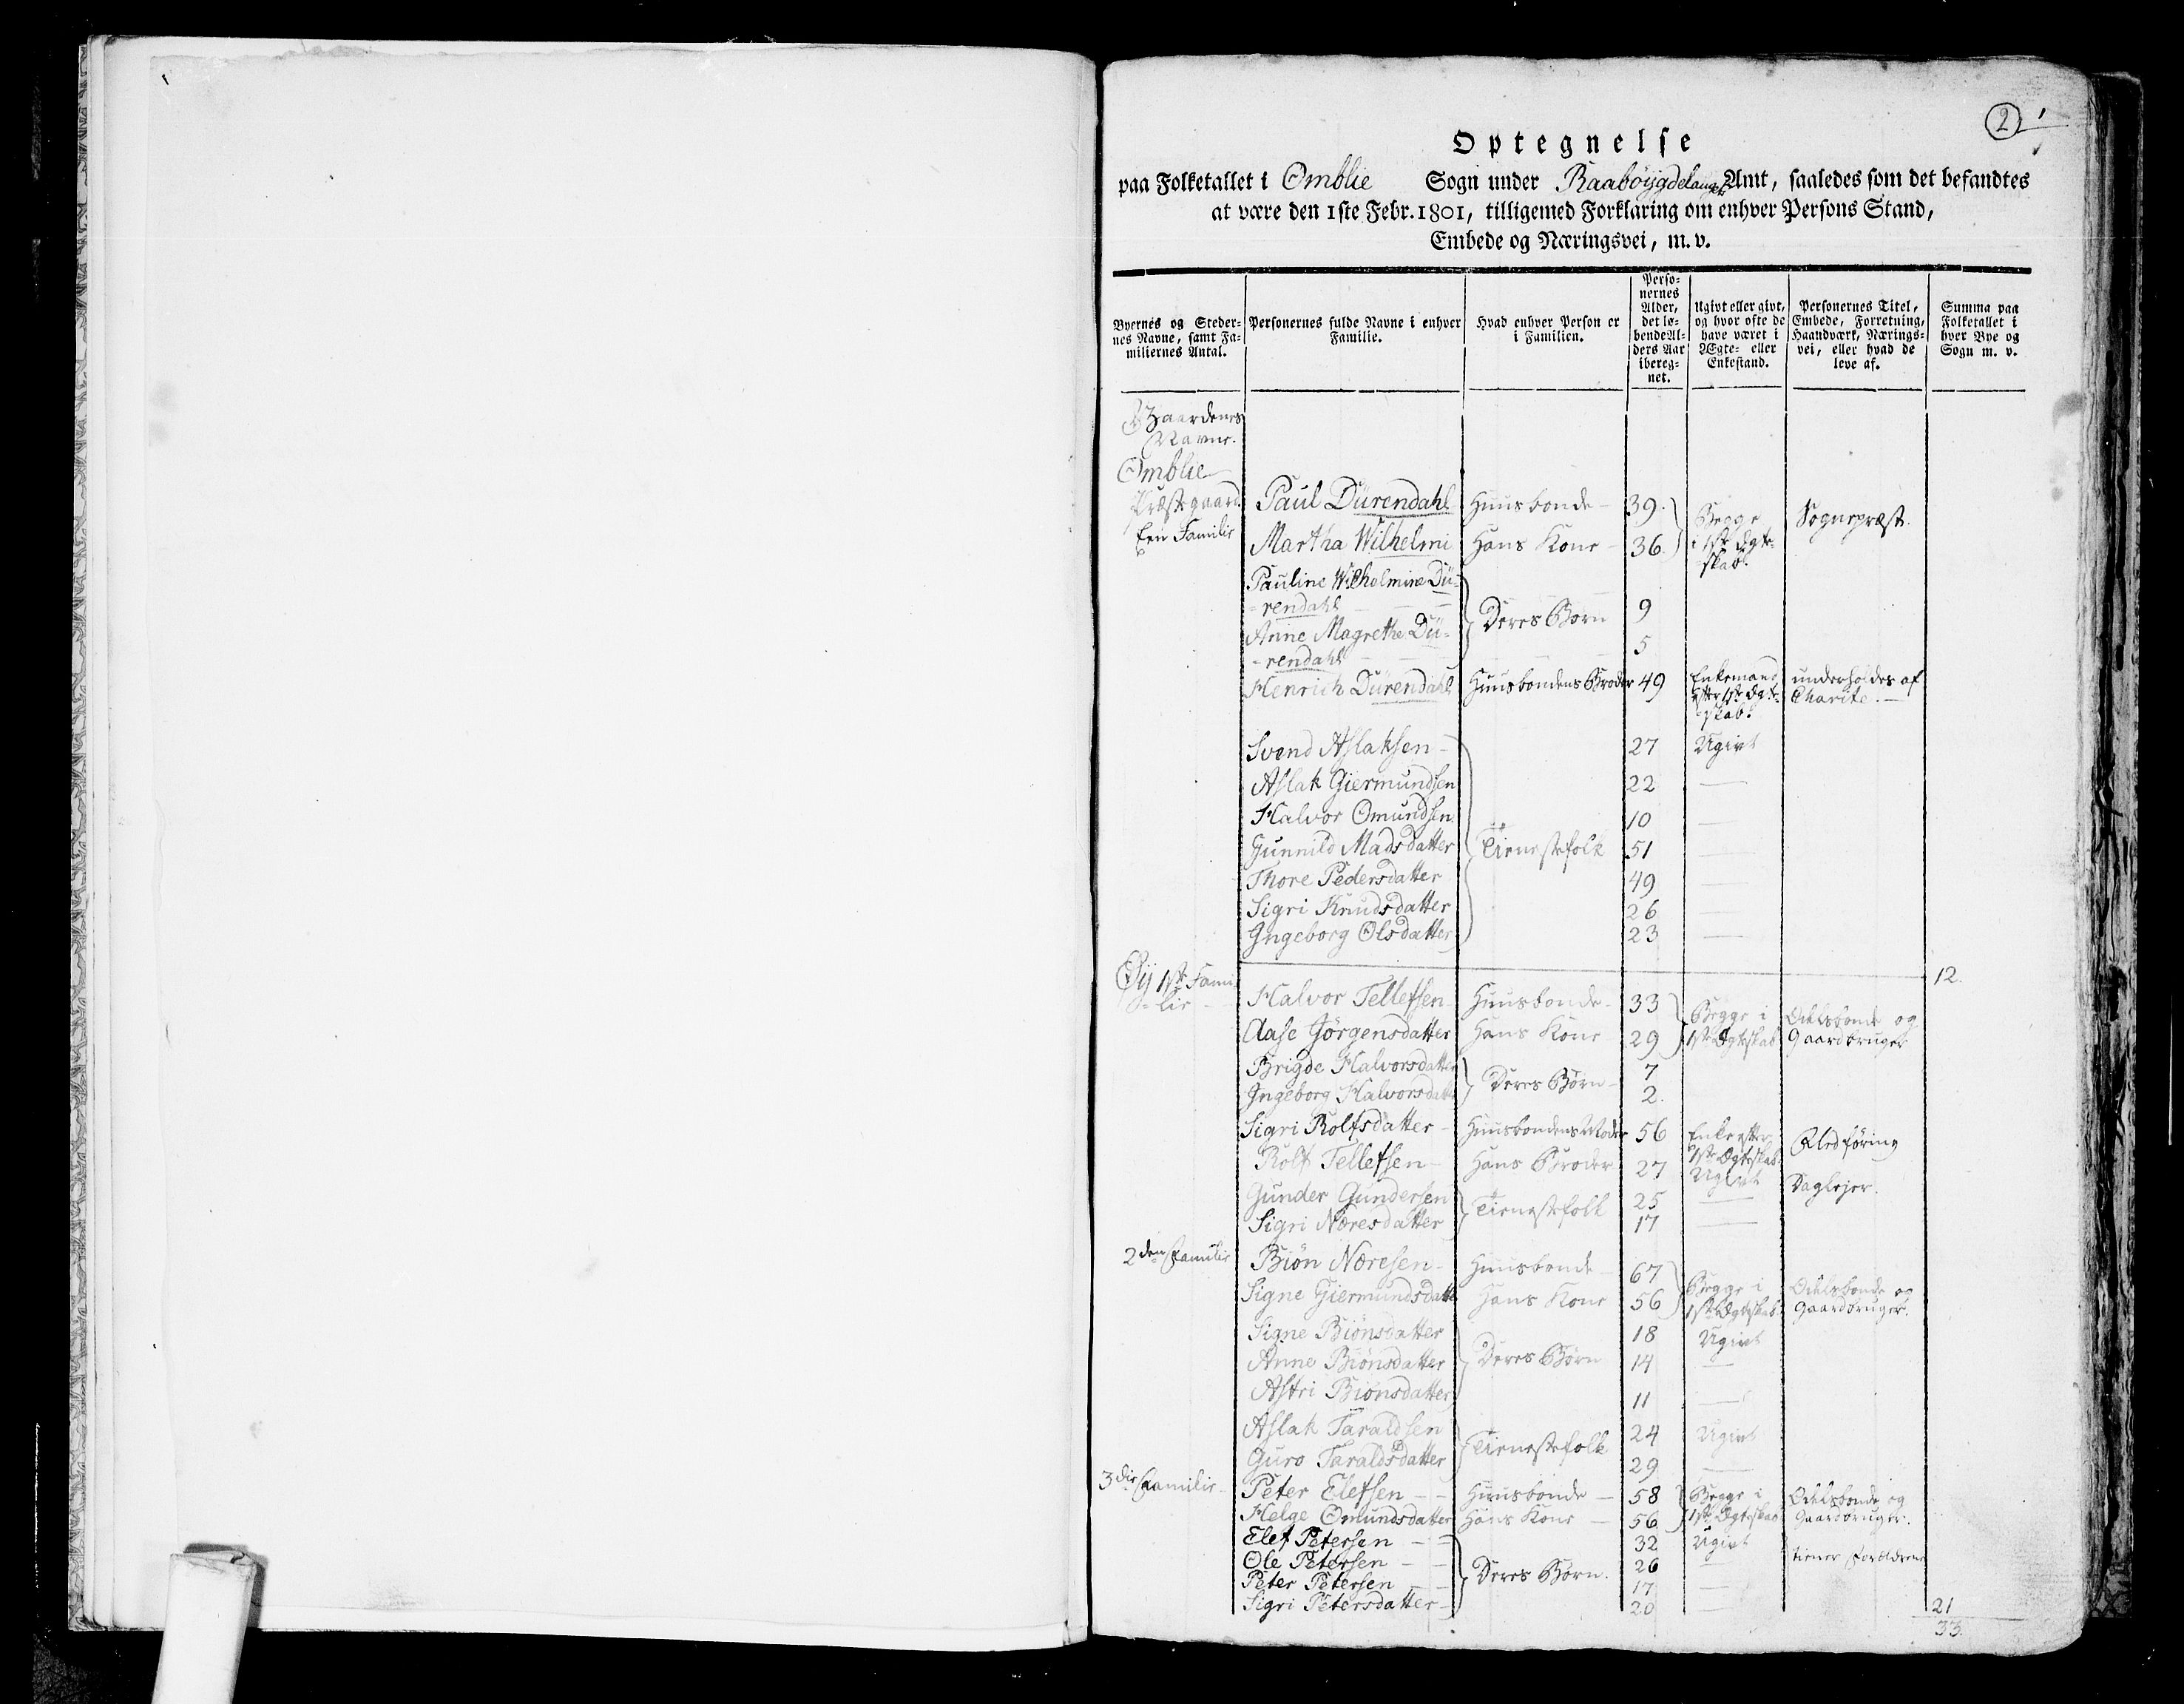 2 1
Optegnelse
paa Folketallet i Omblie Sogn under Raabøijgdelaugets Amt, saaledes som det befandtes
at være den 1ste Febr. 1801, tilligemed Forklaring om enhver Persons Stand,
Embede og Næringsvei, m. v.
Byernes og Steder-
nes Navne, samt Fa-
miliernes Antal.
Personernes fulde Navne i enhver
Familie.
Hvad enhver Person er
i Familien.
Perso-
nernes
Alder,
det lø-
bende Al-
ders Aar
ibereg-
net.
Ugivt eller givt,
og hvor ofte de
have været i
Ægte- eller
Enkestand.
Personernes Titel,
Embede, Forretning,
Haandværk, Nærings-
vei, eller hvad de
leve af.
Summa paa
Folketallet i
hver Bye og
Sogn m. v.
Gaardenes
Navne.
Omblie
Præstegaard.
Een Familie
Paul Dürendahl Huusbonde 39. Begge Sognepræst.
Martha Wilhelmi Hans Kone 36. i 1ste Ægte-
skab.
Pauline Wilhelmine Dü-
rendahl 9
Deres Børn
Anne Magrethe Dü-
rendahl 5
Henrich Dürendahl Huusbondens Broder 49 Enkemand underholdes af
efter 1ste Ægte- Charite.
skab.
Svend Aslaksen 27 Ugivt
Aslak Giermundsen 22 —
Halvor Omundsen 10 —
Gunnild Madsdatter Tienestefolk 51 —
Thore Pedersdatter 49 —
Sigri Knudsdatter 26 —
Ingeborg Olsdatter 23 —
12.
Øij 1ste Fami-
lie
Halvor Tellefsen Huusbonde 33 Begge i Odelsbonde og
Aase Jørgensdatter Hans Kone 29 1ste Ægteskab Gaardbruger
Brigde Halvorsdatter 7
Deres Børn
Ingeborg Halvorsdatter 2.
Sigri Rolfsdatter Huusbondens Moder 56 Enke efter Fledføring
1ste Ægteskab
Rolf Tellefsen Hans Broder 27 Ugivt Daglejer.
Gunder Gundersen Tienestefolk 25 —
Sigri Næresdatter 17 —
2den Familie Biøn Næresen Huusbonde 67 Begge i Odelsbonde og
Signe Giermundsdatter Hans Kone 56 1ste Ægteskab Gaardbruger.
Signe Biønsdatter 18 Ugivt
Anne Biønsdatter Deres Børn 14 —
Astri Biønsdatter 11 —
Aslak Taraldsen 24 Ugivt
Tienestefolk
Guro Taraldsdatter 29 —
3die Familie Peter Elefsen Huusbonde 58 Begge i Odelsbonde og
Helge Omundsdatter Hans Kone 56 1ste Ægteskab Gaardbruger.
Elef Petersen 32 Ugivt
Ole Petersen 26 — tiener Forældrene
Peter Petersen Deres Børn. 17 —
Sigri Petersdatter 20 — 21
33.